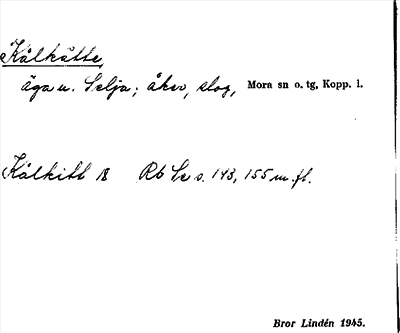 Kålkätte,
äga u. Selja; åker, slog, Mora sn o. tg, Kopp. l.
Kålkitt B Rb s. 143, 155 m. fl.
Bror Lindén 1945.